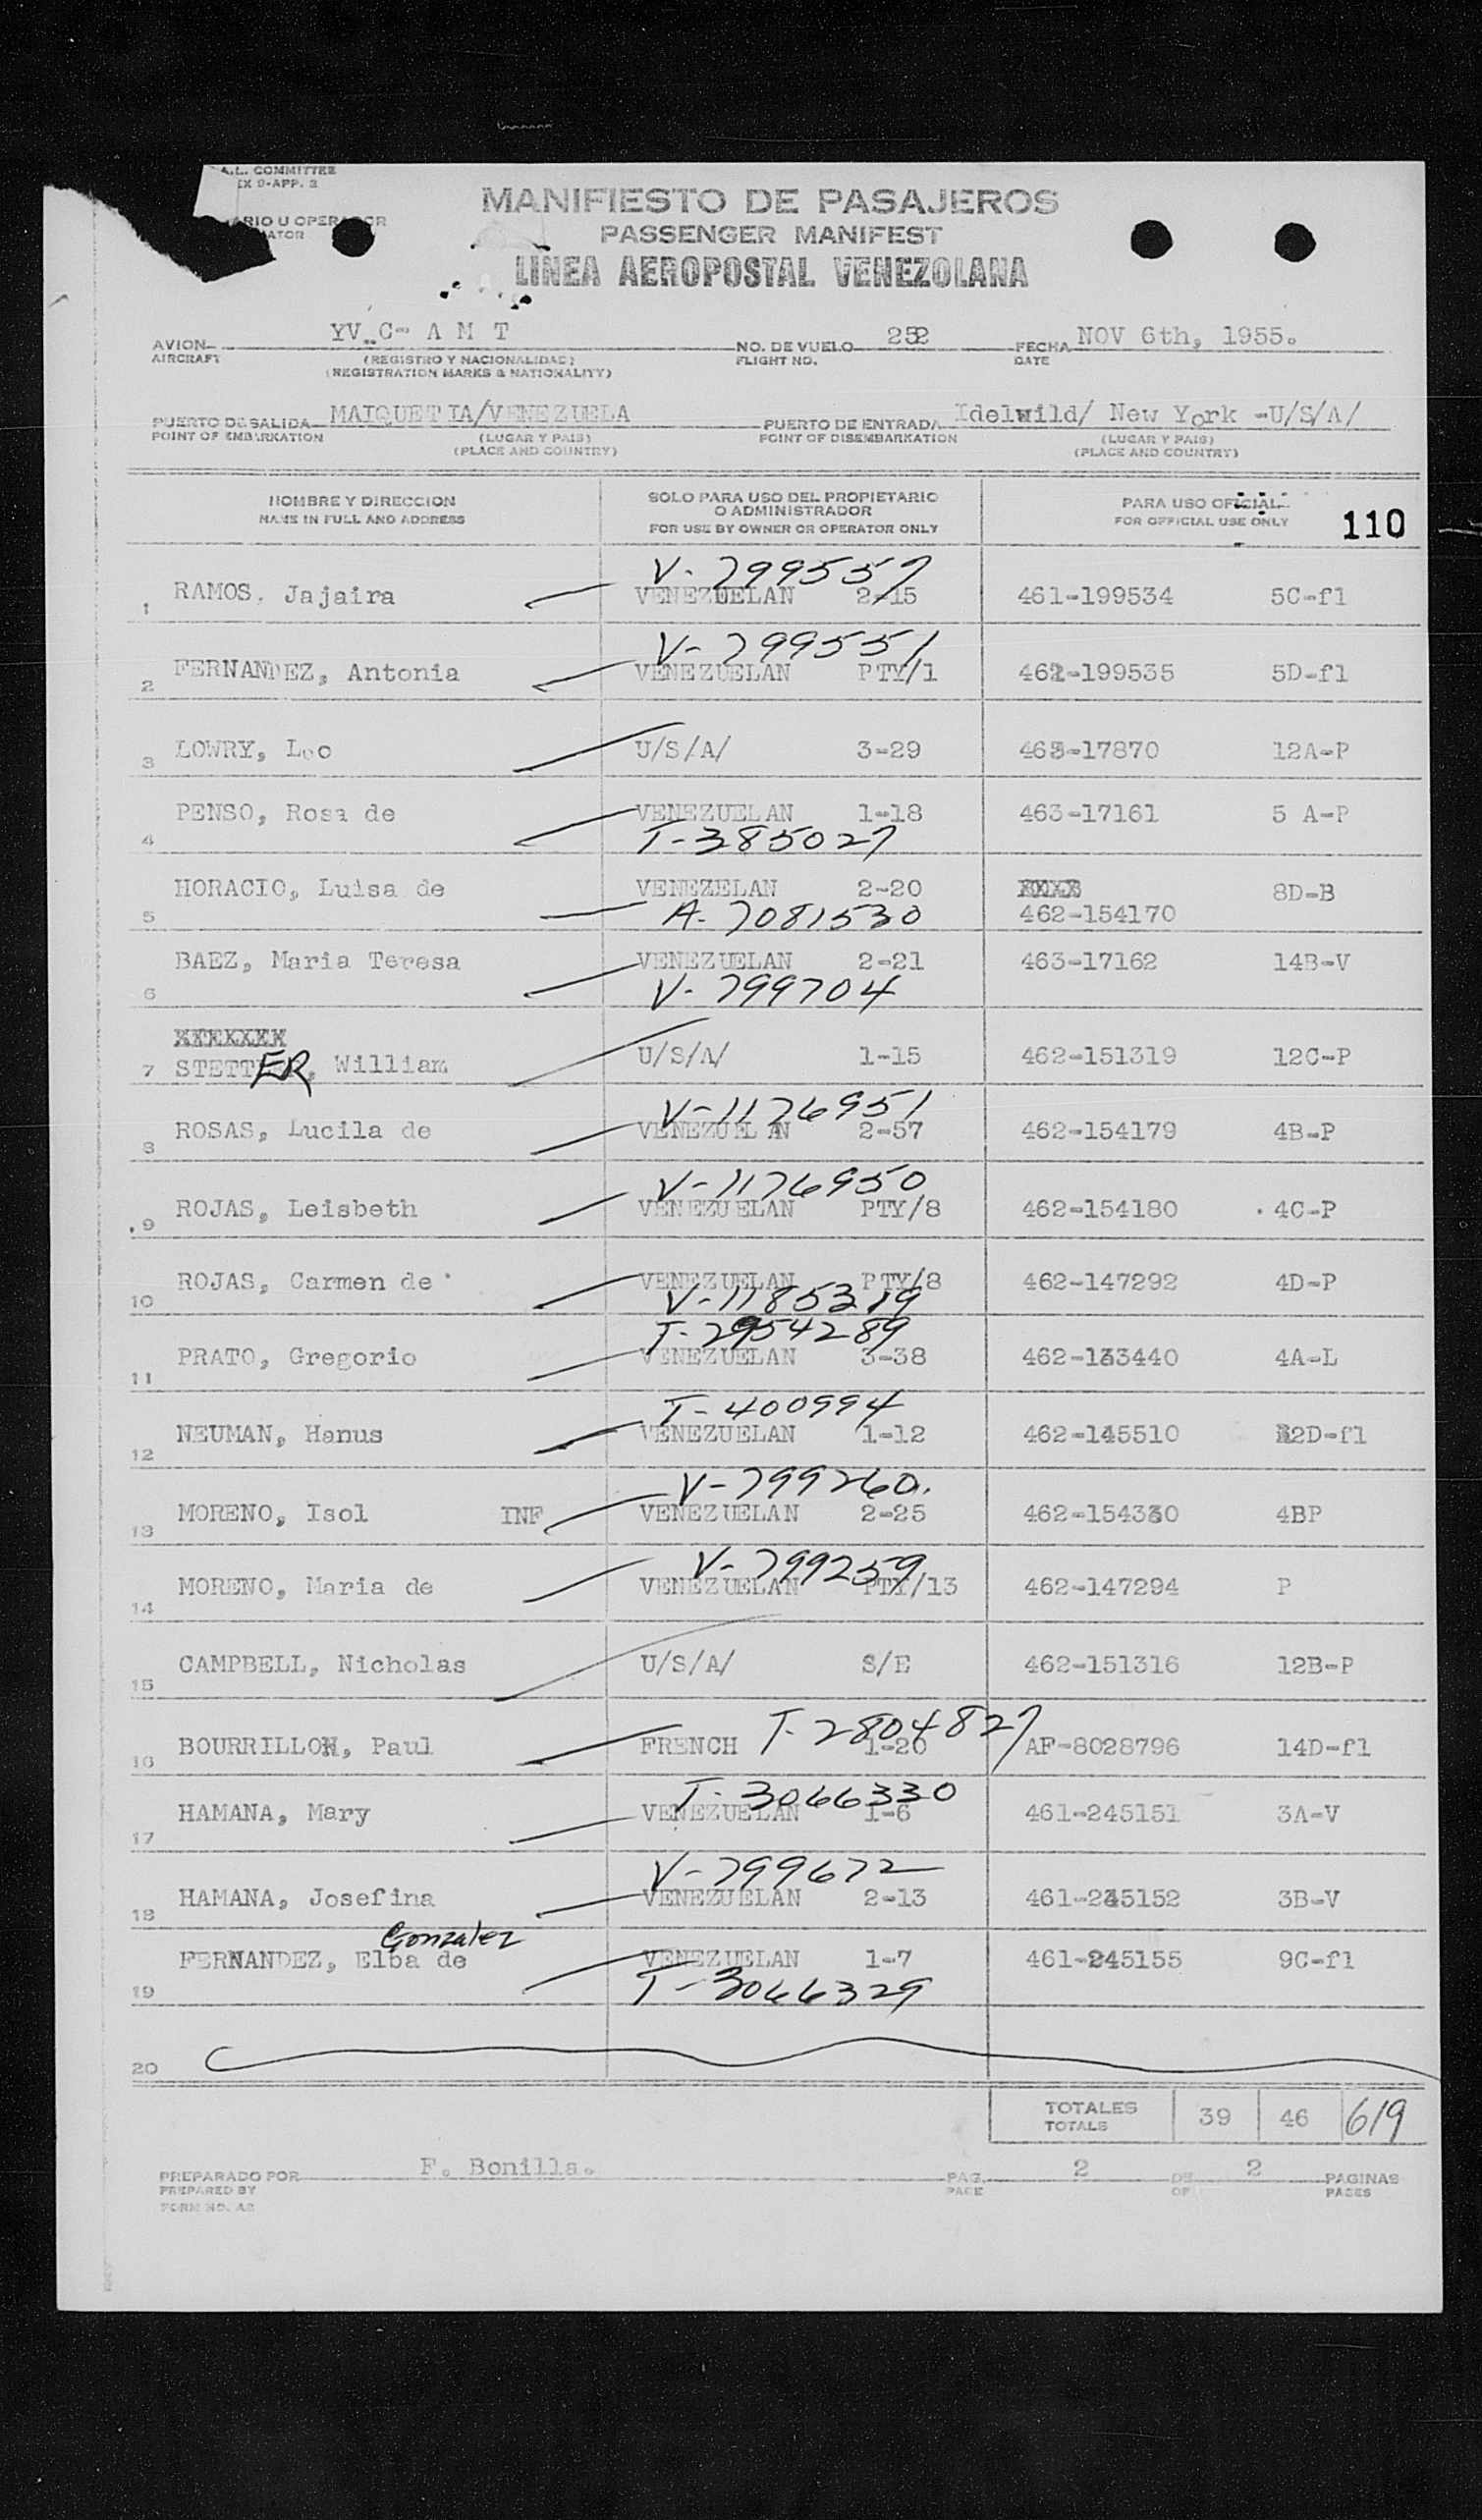 A.L. COMMITTEE
EX 9-APP. 2
ARIO U OPERADOR
ATOR
MANIFIESTO DE PASAJEROS
PASSENGER MANIFEST
LINEA AEROPOSTAL VENEZOLANA
AVION YV..C- A M T NO. DE VUELO 252 FECHA NOV 6th, 1955.
AIRCRAFT (REGISTRO Y NACIONALIDAD) FLIGHT NO. DATE
(REGISTRATION MARKS & NATIONALITY)
PUERTO DE SALIDA MAIQUETIA/VENEZUELA PUERTO DE ENTRADA Idelwild/ New York -U/S/A/
POINT OF EMBARKATION (LUGAR Y PAIS) POINT OF DISEMBARKATION (LUGAR Y PAIS)
(PLACE AND COUNTRY) (PLACE AND COUNTRY)
NOMBRE Y DIRECCION SOLO PARA USO DEL PROPIETARIO PARA USO OFICIAL
O ADMINISTRADOR
NAME IN FULL AND ADDRESS FOR USE BY OWNER OR OPERATOR ONLY FOR OFFICIAL USE ONLY 110
V-799557
1 RAMOS. Jajaira VENEZUELAN 2-15 461-199534 5C-fl
V-799551
2 FERNANDEZ, Antonia VENEZUELAN PTY/1 461-199535 5D-fl
3 LOWRY, Leo U/S/A/ 3-29 463-17870 12A-P
4 PENSO, Rosa de VENEZUELAN 1-18 463-17161 5 A-P
T-385027
5 HORACIO, Luisa de VENEZELAN 2-20 8D-B
A-7081530 462-154170
6 BAEZ, Maria Teresa VENEZUELAN 2-21 463-17162 14B-V
V-799704
7 STETTER, William U/S/A/ 1-15 462-151319 12C-P
V-1176951
8 ROSAS, Lucila de VENEZUELAN 2-57 462-154179 4B-P
V-1176950
9 ROJAS, Leisbeth VENEZUELAN PTY/8 462-154180 4C-P
10 ROJAS, Carmen de VENEZUELAN PTY/8 462-147292 4D-P
V-1185319
T-2954289
11 PRATO, Gregorio VENEZUELAN 3-38 462-133440 4A-L
T-400994
12 NEUMAN, Hanus VENEZUELAN 1-12 462-145510 12D-fl
V-799260.
13 MORENO, Isol INF VENEZUELAN 2-25 462-154330 4BP
V-799259
14 MORENO, Maria de VENEZUELAN PTY/13 462-147294 P
15 CAMPBELL, Nicholas U/S/A/ S/E 462-151316 12B-P
T-2804827
16 BOURRILLON, Paul FRENCH 1-20 AF-8028796 14D-fl
T-3066330
17 HAMANA, Mary VENEZUELAN 1-6 461-245151 3A-V
V-799672
18 HAMANA, Josefina VENEZUELAN 2-13 461-245152 3B-V
Gonzalez
19 FERNANDEZ, Elba de VENEZUELAN 1-7 461-245155 9C-fl
T-3066329
20
TOTALES 39 46 619
TOTALS
PREPARADO POR F. Bonilla. PAG. 2 DE 2 PAGINAS
PREPARED BY PAGE OF PAGES
FORM NO. A2